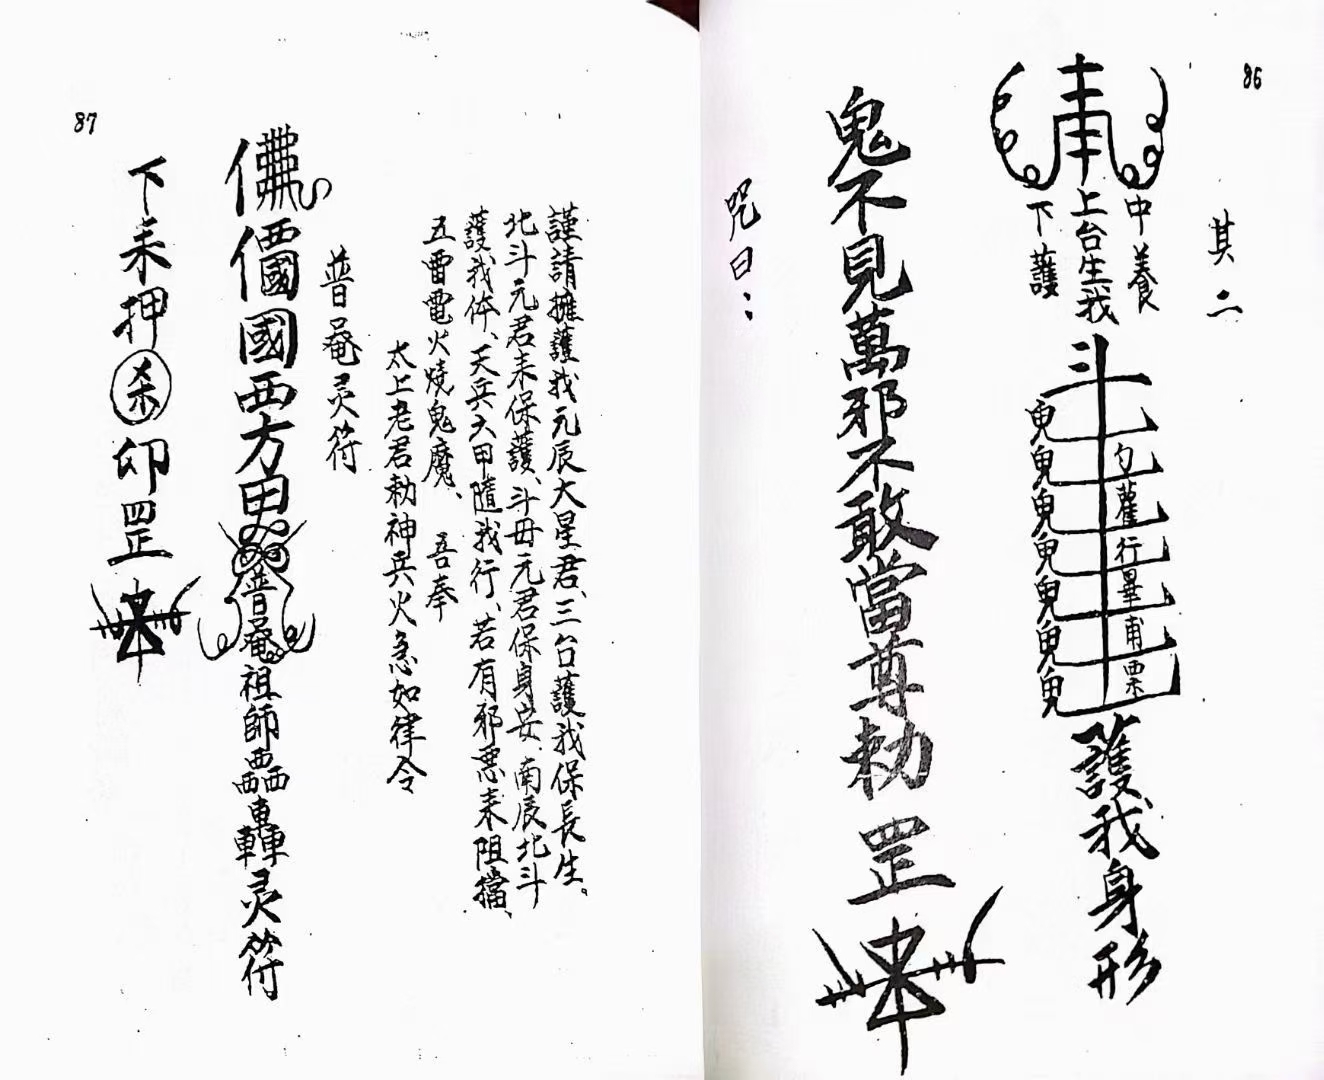 86
其二
中養
上台生我
下護
斗
勺
藿
行
畢
甫
票
護我身形
鬼不見萬邪不敢當尊勅罡
咒曰：
謹請擁護我元辰大星君、三台護我保長生。
北斗元君耒保護、斗毋元君保身安、南辰北斗
護我体、天兵六甲隨我行、若有邪悪耒阻擋、
五雷電火燒鬼魔、吾奉
太上老君勅神兵火急如律令
普菴灵符
國西方
普菴祖師轟灵符
下耒押杀卯罡
87